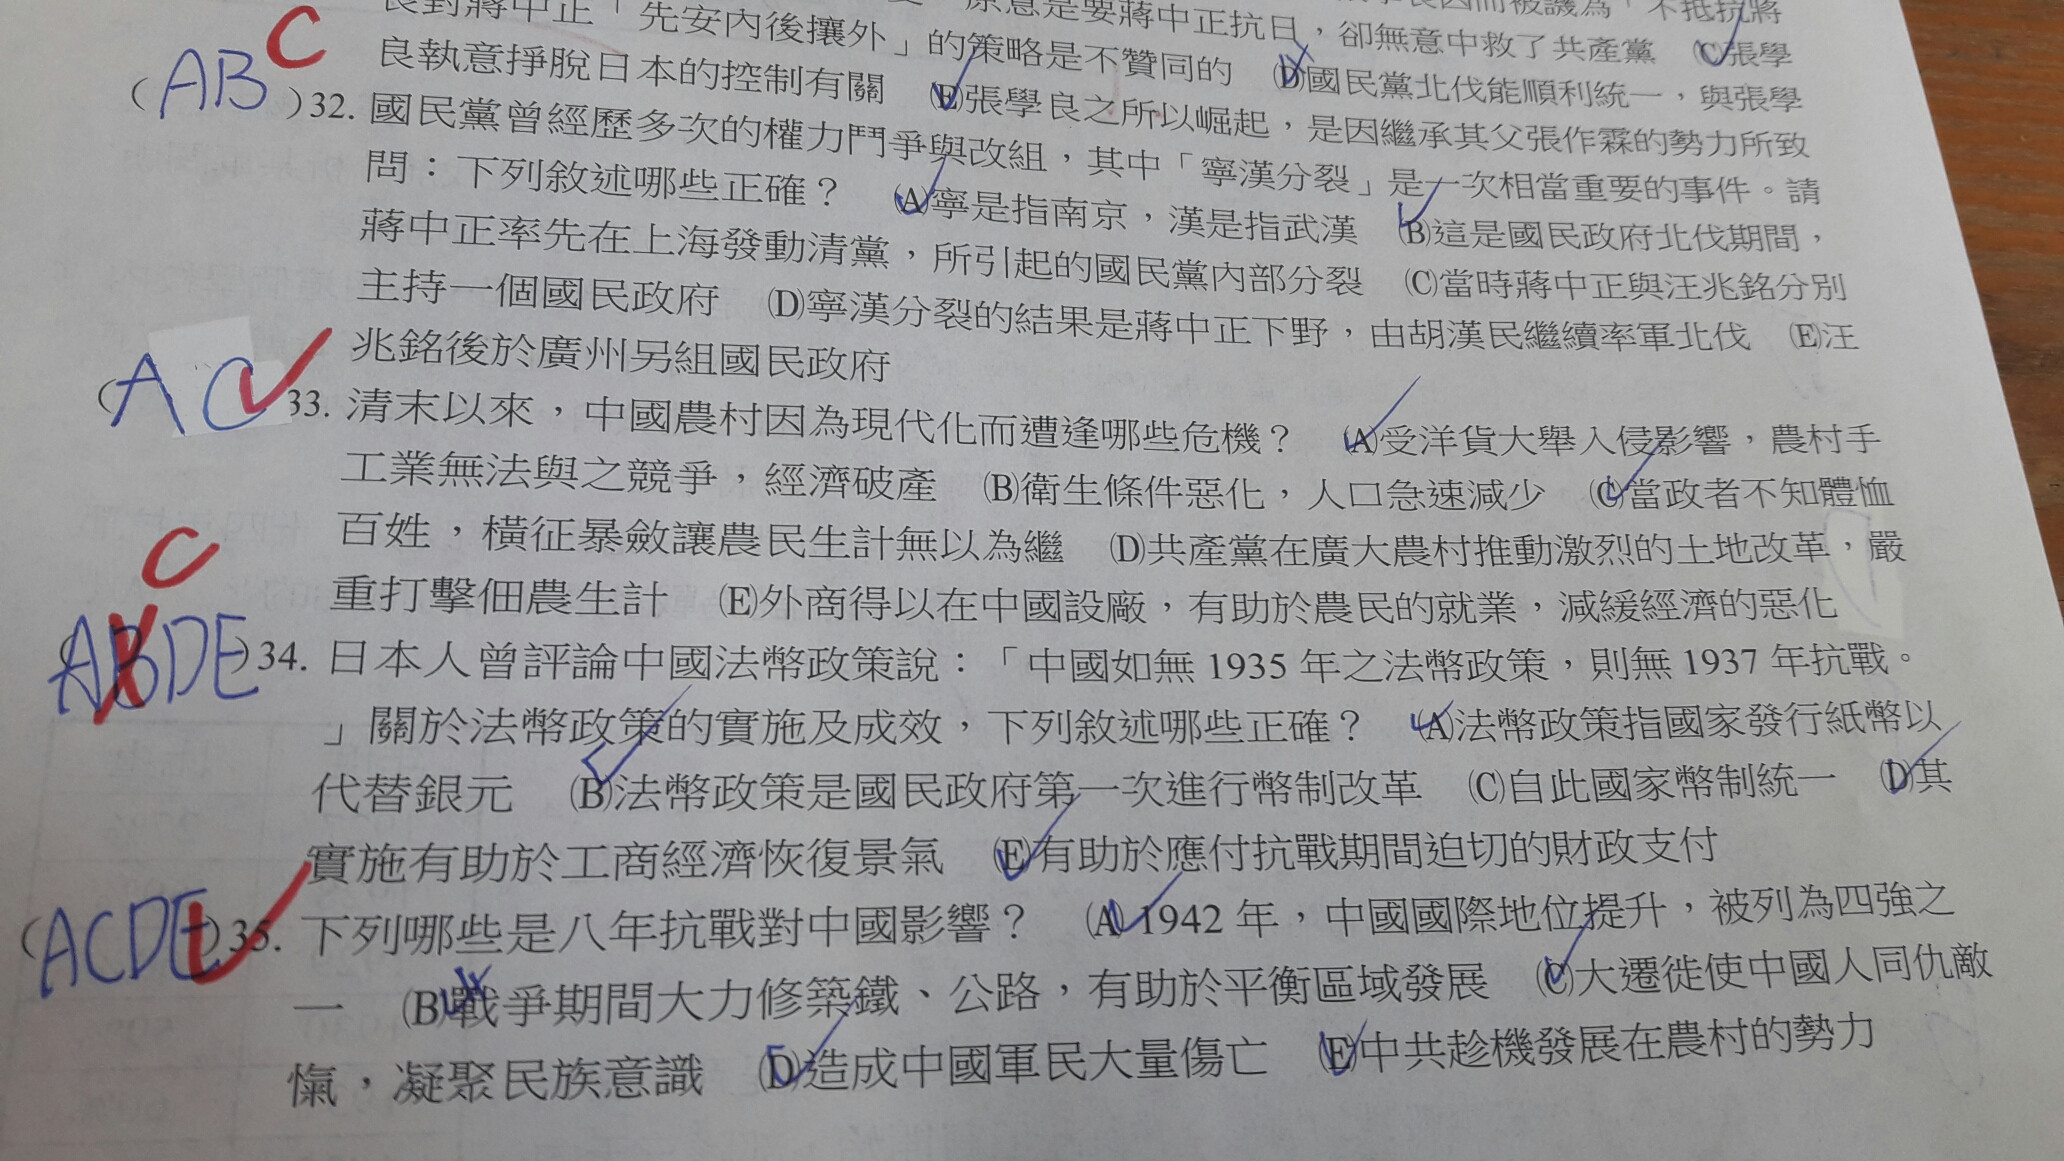 良對蔣中正「先安內後攘外」的策略是不贊同的 (D)國民黨北伐能順利統一,與張學
原意是要蔣中正抗日,卻無意中救了共產黨 (C)張學
良執意掙脫日本的控制有關 (E)張學良之所以崛起,是因繼承其父張作霖的勢力所致
C
(AB)32. 國民黨曾經歷多次的權力鬥爭與改組,其中「寧漢分裂」是一次相當重要的事件。請
問:下列敘述哪些正確? (A)寧是指南京,漢是指武漢 (B)這是國民政府北伐期間,
蔣中正率先在上海發動清黨,所引起的國民黨內部分裂 (C)當時蔣中正與汪兆銘分別
主持一個國民政府 (D)寧漢分裂的結果是蔣中正下野,由胡漢民繼續率軍北伐 (E)汪
兆銘後於廣州另組國民政府
(AC 33. 清末以來,中國農村因為現代化而遭逢哪些危機? (A)受洋貨大舉入侵影響,農村手
工業無法與之競爭,經濟破產 (B)衛生條件惡化,人口急速減少 (C)當政者不知體恤
百姓,橫征暴斂讓農民生計無以為繼 (D)共產黨在廣大農村推動激烈的土地改革,嚴
重打擊佃農生計 (E)外商得以在中國設廠,有助於農民的就業,減緩經濟的惡化
C
(ABDE)34. 日本人曾評論中國法幣政策說:「中國如無 1935 年之法幣政策,則無 1937 年抗戰。
」關於法幣政策的實施及成效,下列敘述哪些正確? (A)法幣政策指國家發行紙幣以
代替銀元 (B)法幣政策是國民政府第一次進行幣制改革 (C)自此國家幣制統一 (D)其
實施有助於工商經濟恢復景氣 (E)有助於應付抗戰期間迫切的財政支付
(ACDE)35. 下列哪些是八年抗戰對中國影響? (A) 1942 年,中國國際地位提升,被列為四強之
一 (B)戰爭期間大力修築鐵、公路,有助於平衡區域發展 (C)大遷徙使中國人同仇敵
愾,凝聚民族意識 (D)造成中國軍民大量傷亡 (E)中共趁機發展在農村的勢力